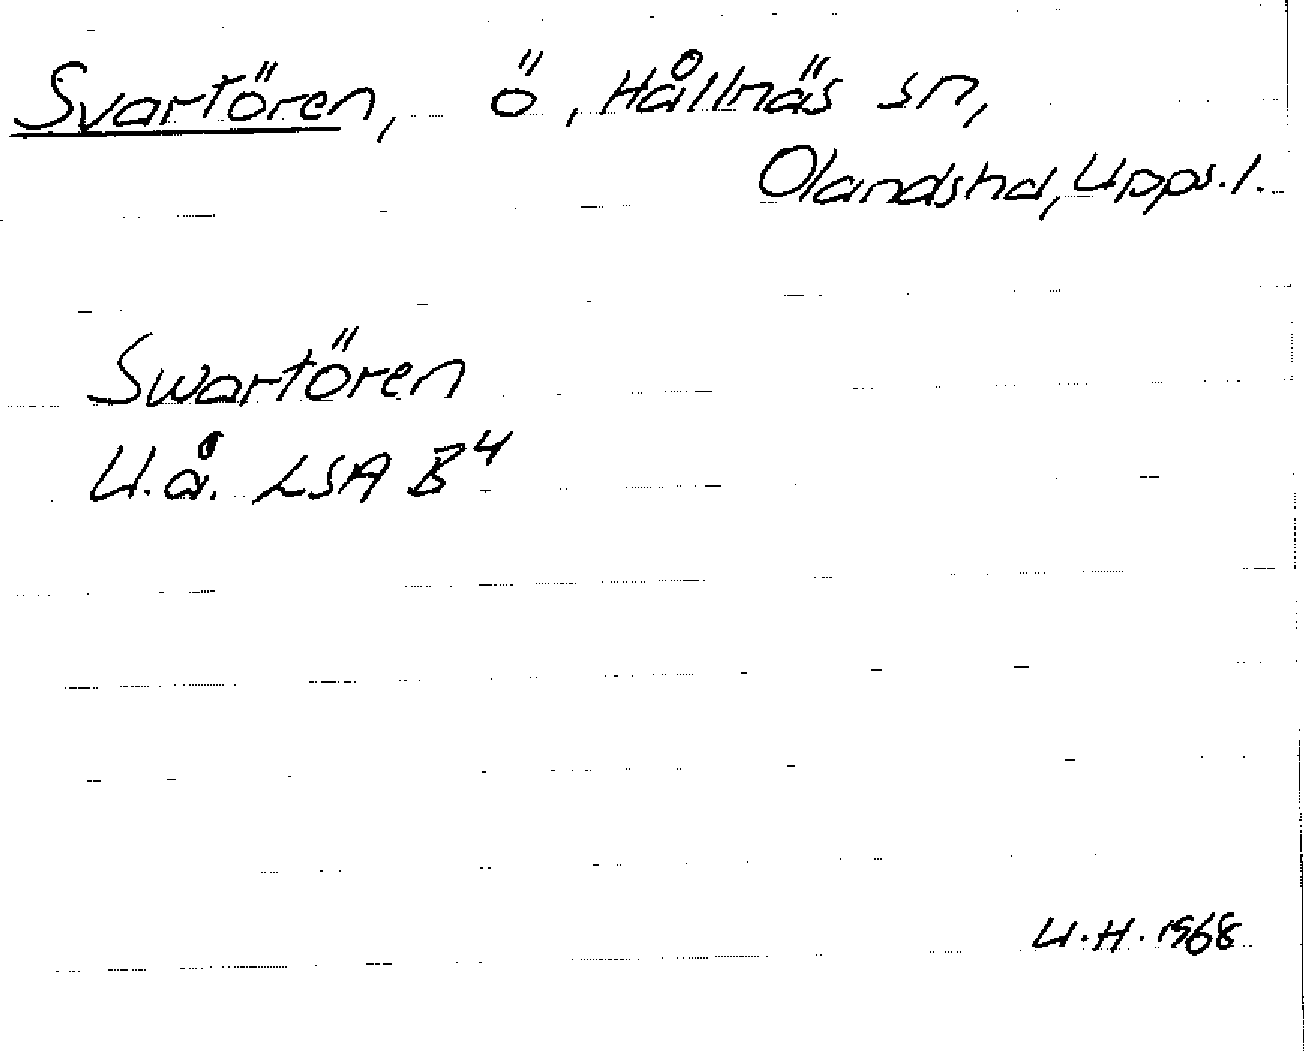 Svartören, ö, Hållnäs sn,
Olandshd, Upps.l.
Swartören
U.å. LSA B4
U.H. 1968